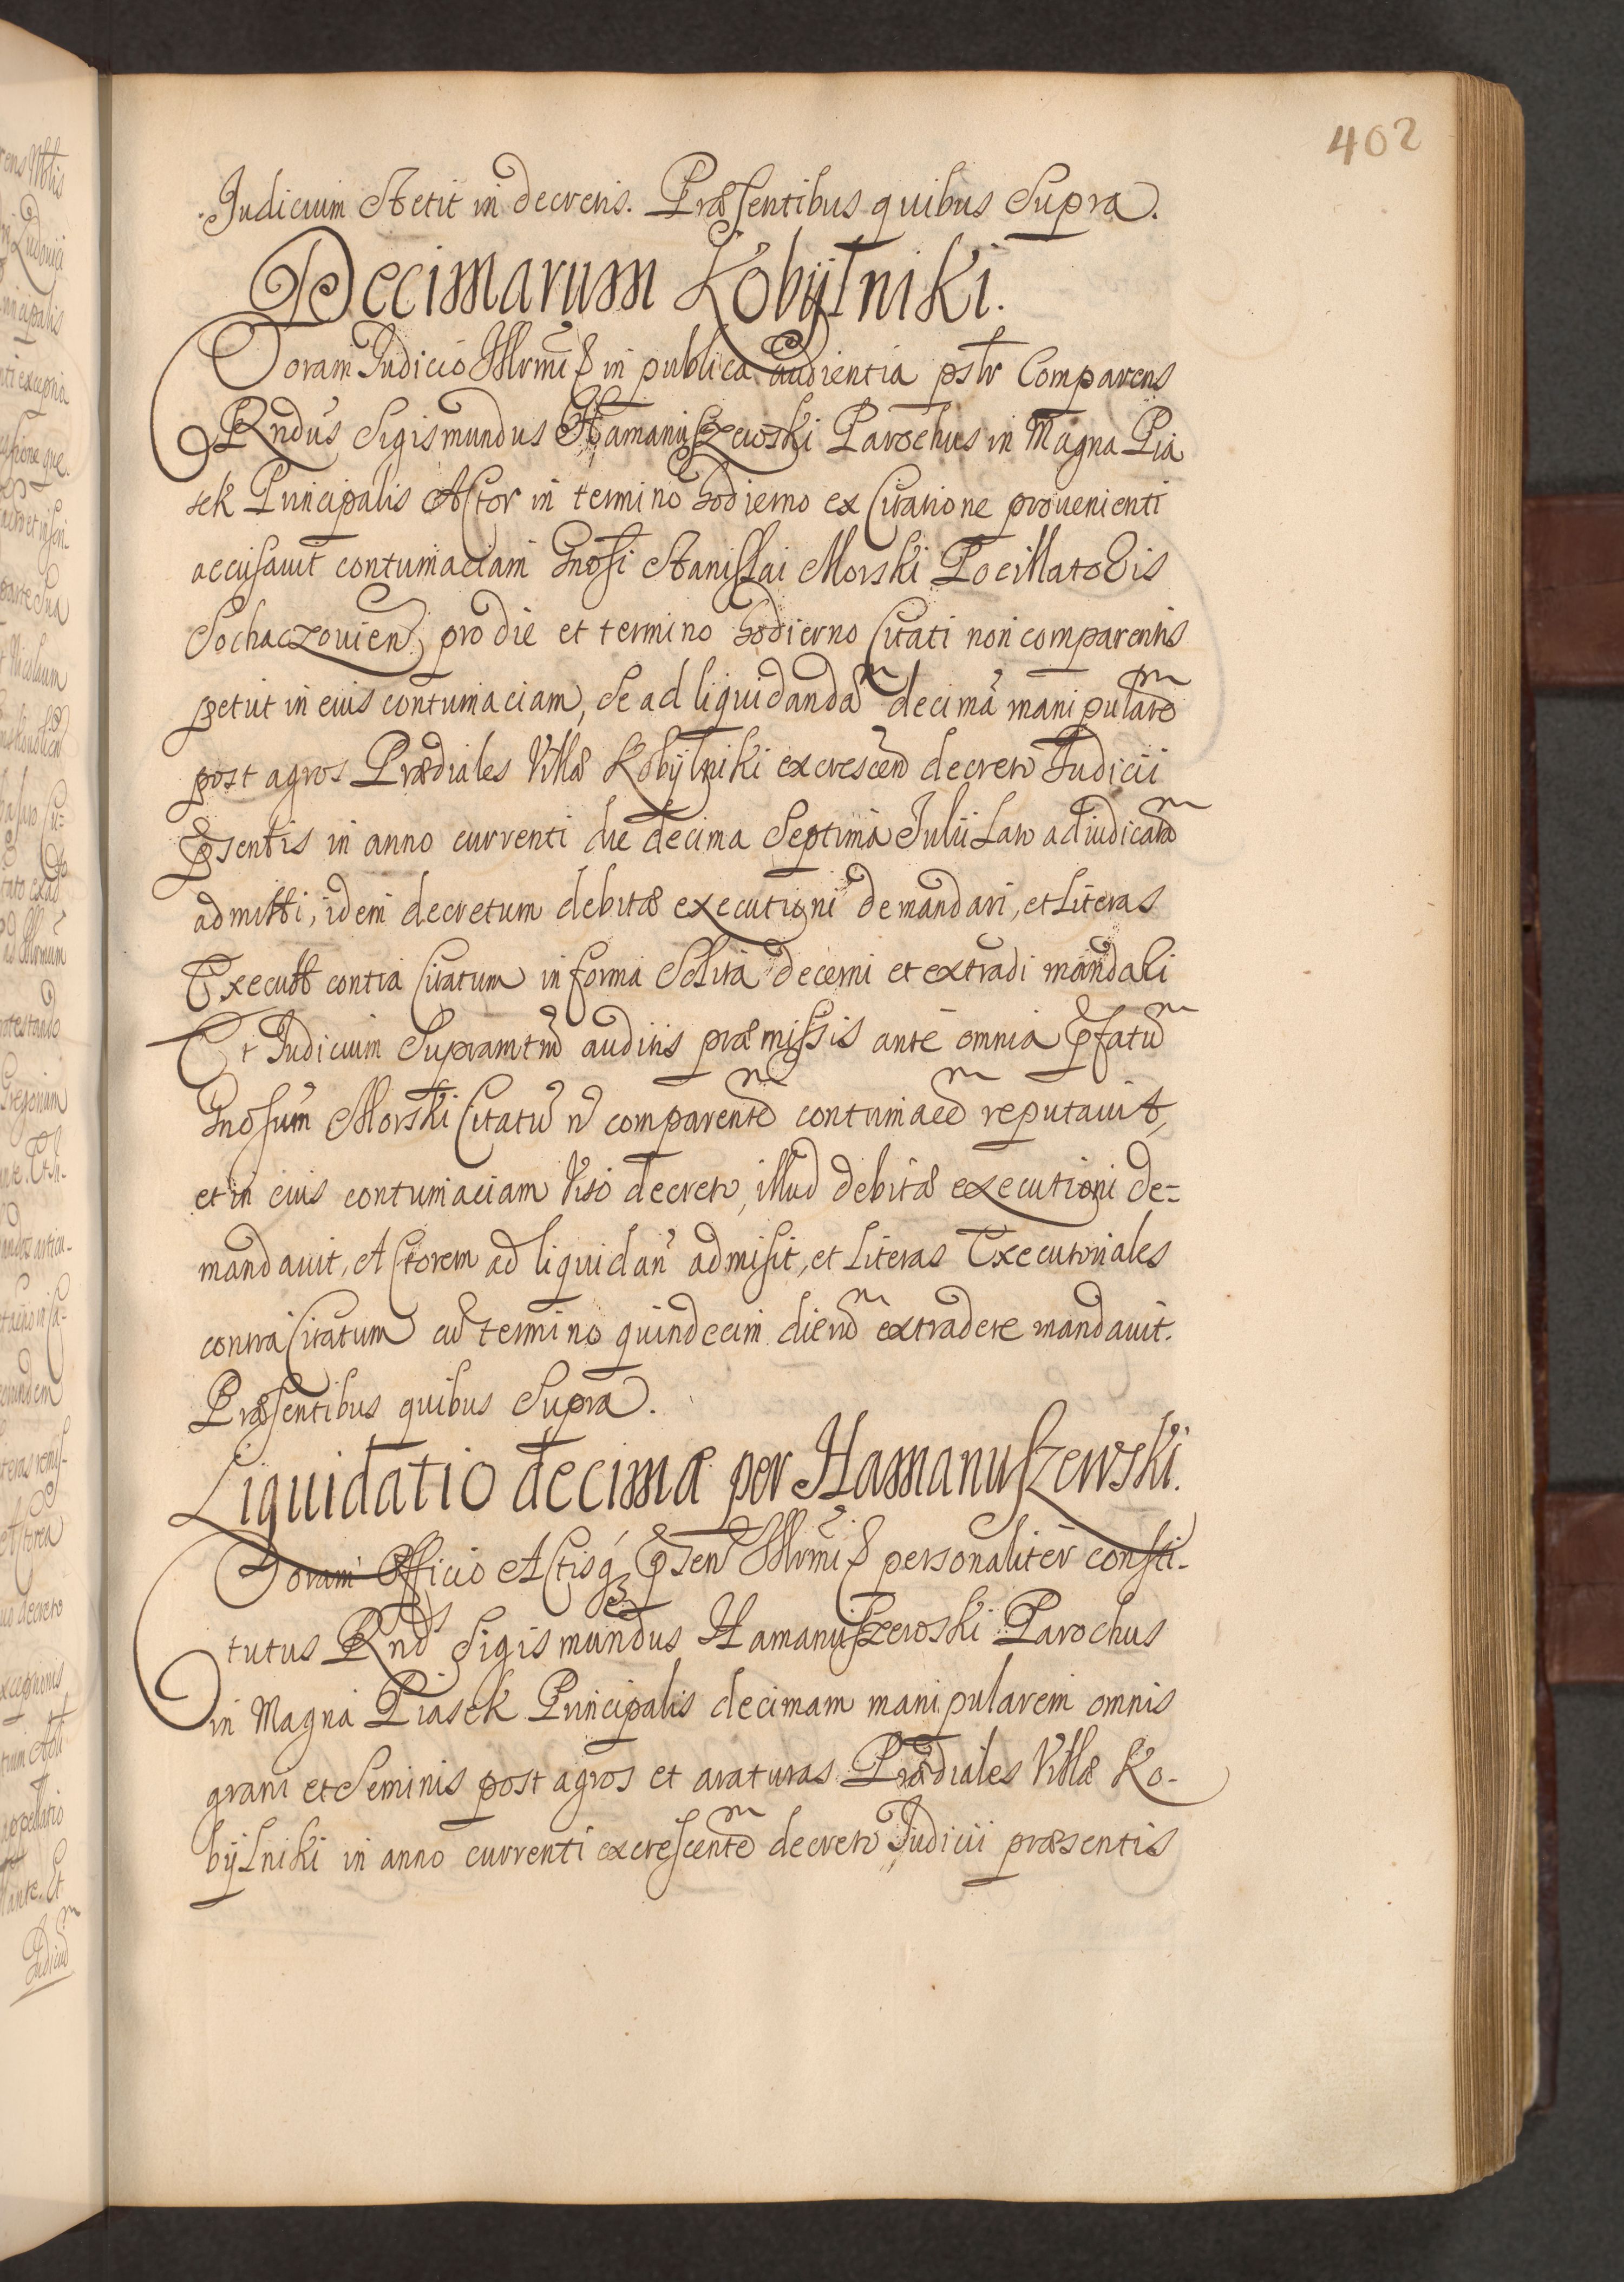 402
Judicium Stetit in decretis. Præsentibus quibus Supra.
Decimarum Kobÿlniki.
Coram Judicio Illrmi S in publica audientia pstr Comparens
Rndus Sigismundus Hamanuszewski Parochus in Magna Pia
sek Principalis Actor in termino hodierno ex Citatione prouenienti
accusauit contumaciam Gnosi Stanislai Morski Pocillatoris
Sochaczouien, pro die et termino hodierno Citati non comparentis
petiit in eius contumaciam, se ad liquidandã decimã manipularẽ
post agros Prædiales Villæ Kobÿlniki excrescẽn decreto Judicii
pñsentis in anno currenti die decima Septima Julii Lato adiudicatã
admitti, idem decretum debitæ executioni demandari, et Literas
Execult contra Citatum in forma Solita decerni et extradi mandari
Et Judicium Supramtm̃ auditis præmissis ante omnia pfatũ
Gnosum Morski Citatũ ñ comparentẽ contumacẽ reputauit,
et in eius contumaciam Viso decreto, illud debitæ executioni de=
mandauit, Actorem ad liquidan admisit, et Literas Executoriales
contra Citatum cũ termino quindecim dierũ extradere mandauit.
Præsentibus quibus Supra.
Liquidatio decimæ per Hamanuszewski.
Coram Officio Actisq́ pñsen Illrmi S personaliter consti-
tutus Rnds Sigismundus Hamanuszewski Parochus
in Magna Piasek Principalis decimam manipularem omnis
grani et Seminis post agros et araturas Prædiales Villæ Ko-
bÿlniki in anno currenti excrescentẽ decreto Judicii præsentis